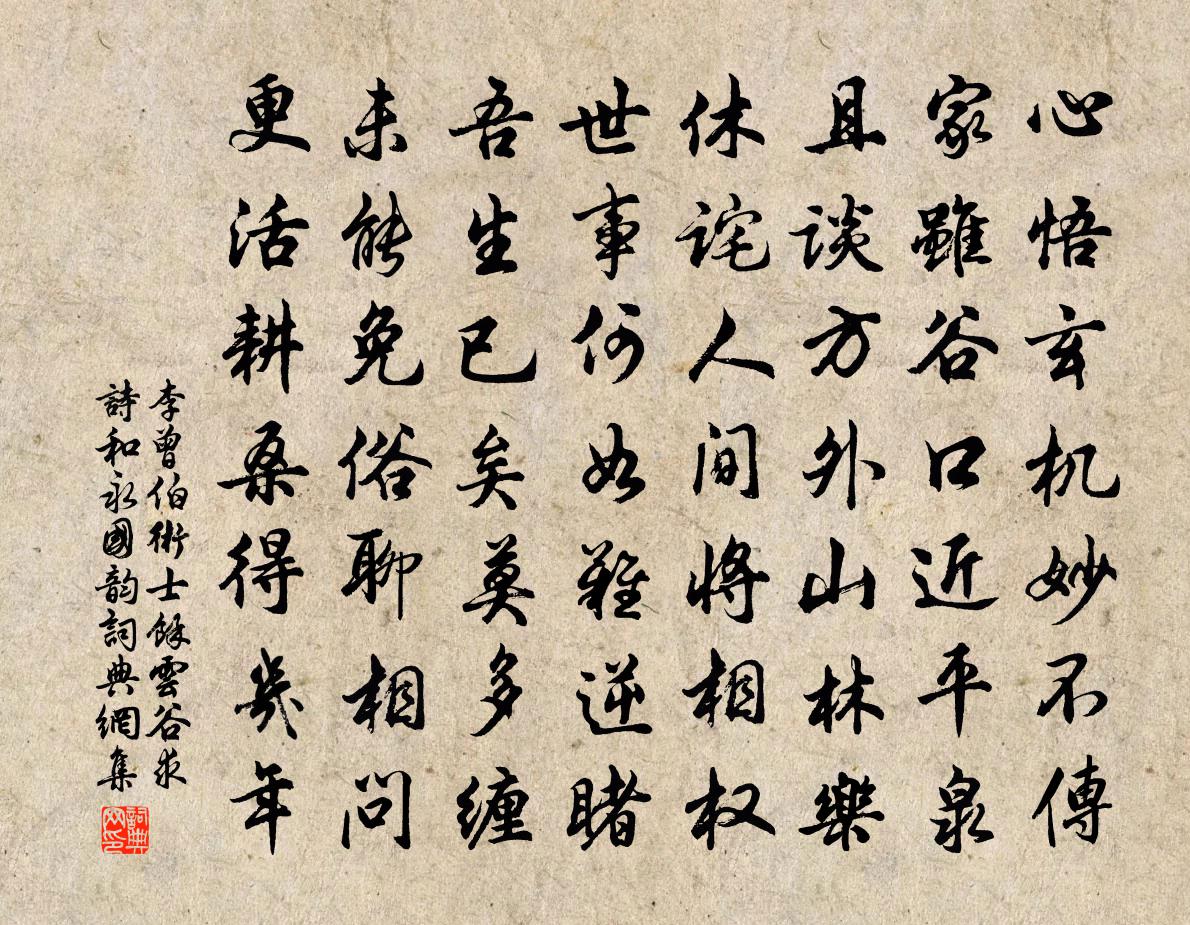 心悟玄机妙不傳
家雖谷口近平泉
且談方外山林樂
休詫人間將相权
世事何如難逆睹
吾生已矣莫多纏
未能免俗聊相問
更活耕桑得幾年
李曾伯術士餘雲谷求
詩和永國韵詞典網集
詞典
网印